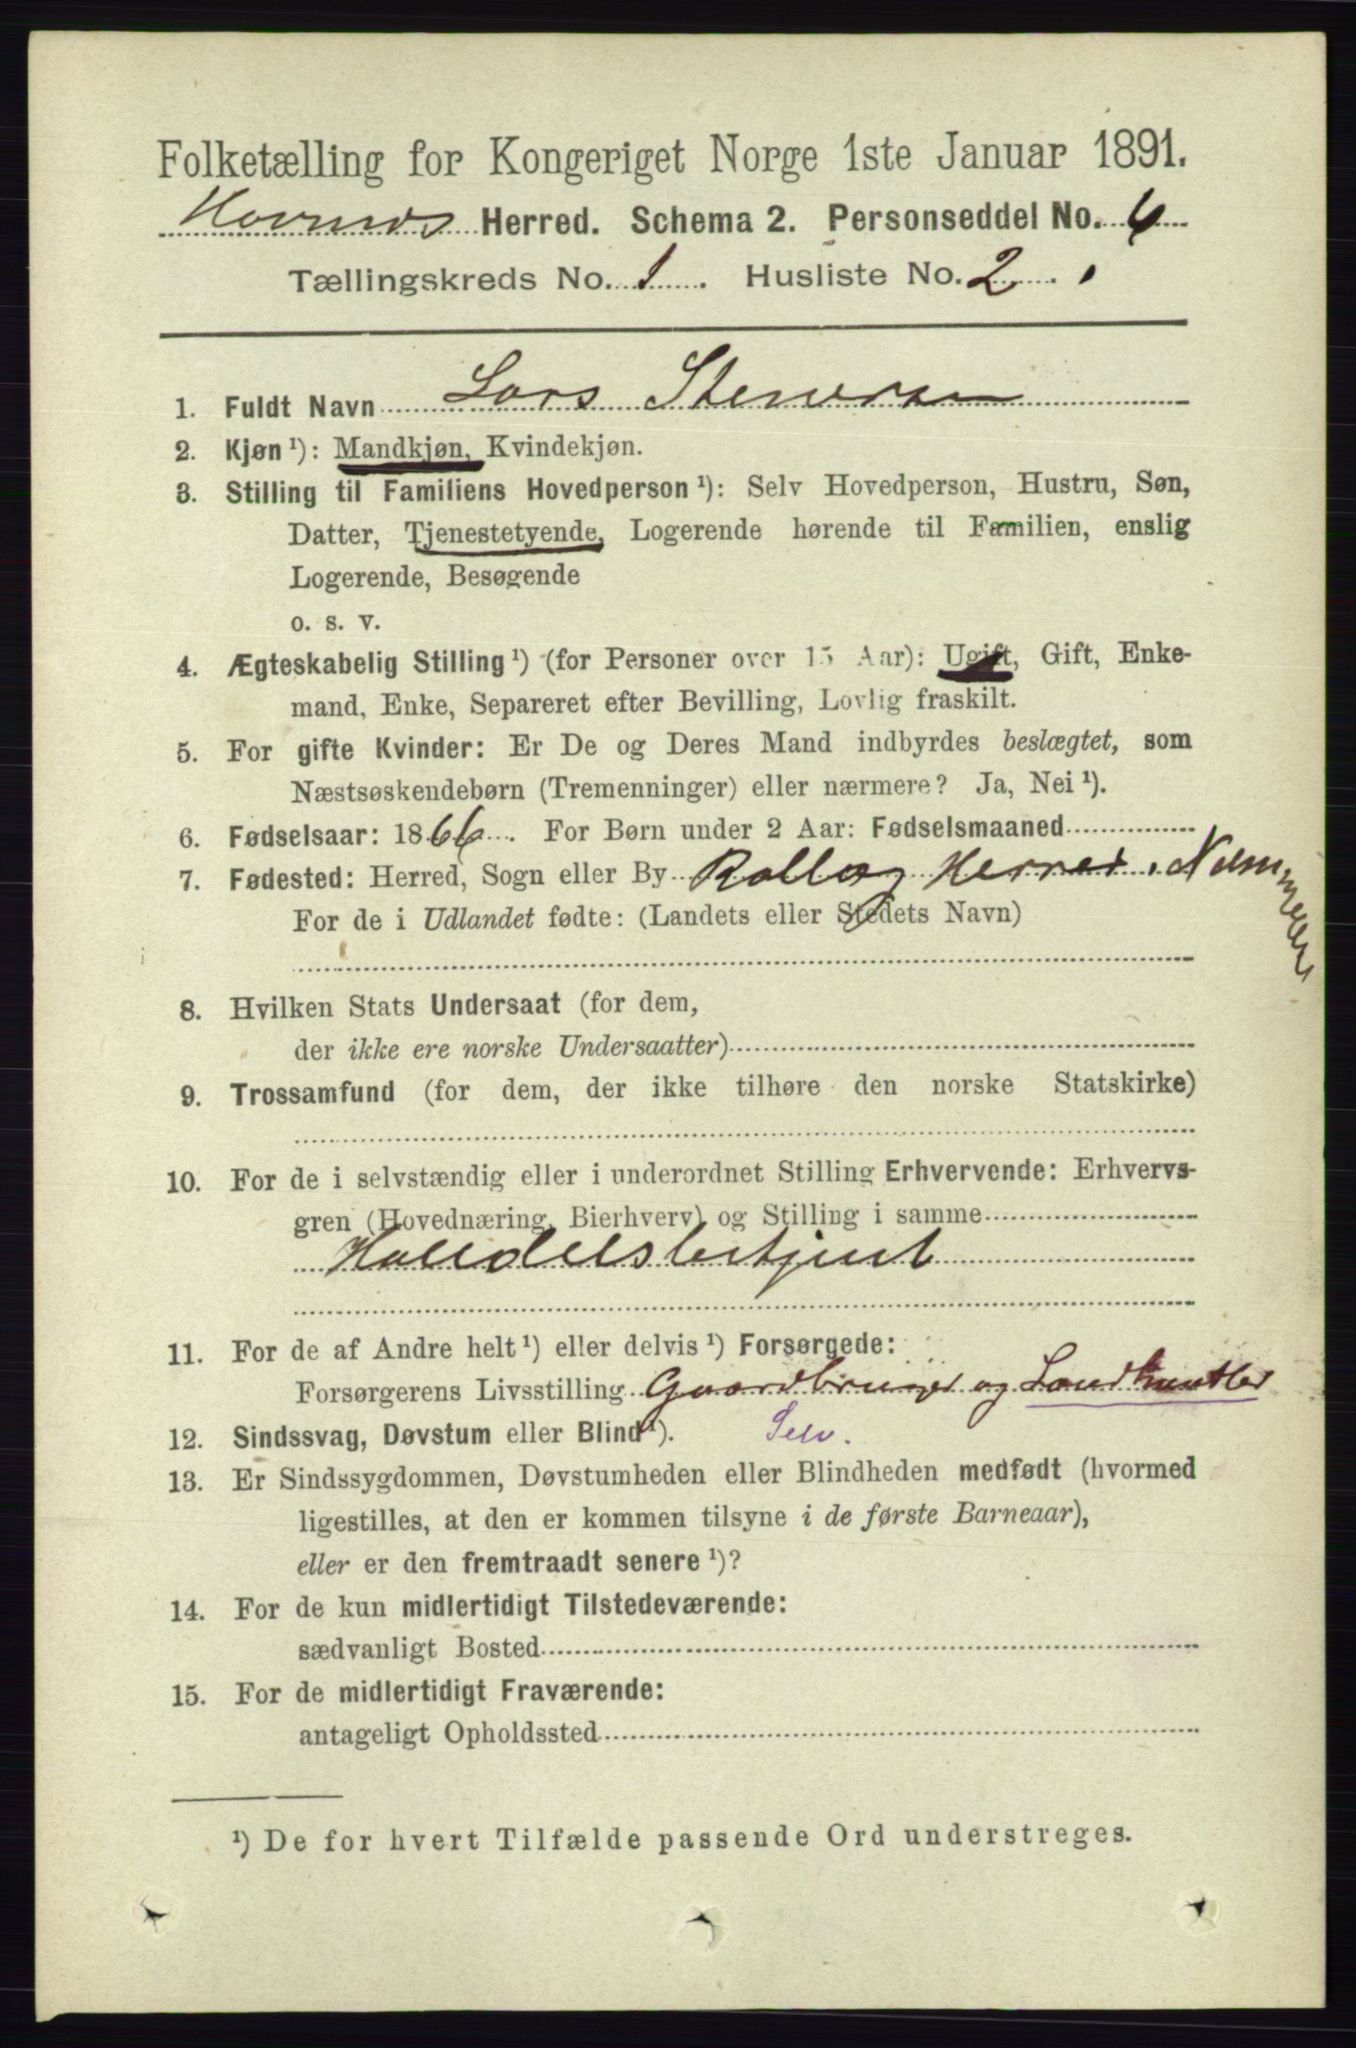 Folketælling for Kongeriget Norge 1ste Januar 1891.
Hovnæs Herred. Schema 2. Personseddel No. 6
Tællingskreds No. 1. Husliste No. 2.
1. Fuldt Navn Lars Stenersen
2. Kjøn ¹): Mandkjøn, Kvindekjøn.
3. Stilling til Familiens Hovedperson ¹): Selv Hovedperson, Hustru, Søn,
Datter, Tjenestetyende, Logerende hørende til Familien, enslig
Logerende, Besøgende
o. s. v.
4. Ægteskabelig Stilling ¹) (for Personer over 15 Aar): Ugift, Gift, Enke-
mand, Enke, Separeret efter Bevilling, Lovlig fraskilt.
5. For gifte Kvinder: Er De og Deres Mand indbyrdes beslægtet, som
Næstsøskendebørn (Tremenninger) eller nærmere? Ja, Nei ¹).
6. Fødselsaar: 1866. For Børn under 2 Aar: Fødselsmaaned
7. Fødested: Herred, Sogn eller By Rollag Herred. Nummedal
For de i Udlandet fødte: (Landets eller Stedets Navn)
8. Hvilken Stats Undersaat (for dem,
der ikke ere norske Undersaatter)
9. Trossamfund (for dem, der ikke tilhøre den norske Statskirke)
10. For de i selvstændig eller i underordnet Stilling Erhvervende: Erhvervs-
gren (Hovednæring, Bierhverv) og Stilling i samme
Handelsbetjent
11. For de af Andre helt ¹) eller delvis ¹) Forsørgede:
Forsørgerens Livsstilling Gaardbruger og Landhandler
12. Sindssvag, Døvstum eller Blind ¹). Selv.
13. Er Sindssygdommen, Døvstumheden eller Blindheden medfødt (hvormed
ligestilles, at den er kommen tilsyne i de første Barneaar),
eller er den fremtraadt senere ¹)?
14. For de kun midlertidigt Tilstedeværende:
sædvanligt Bosted
15. For de midlertidigt Fraværende:
antageligt Opholdssted
¹) De for hvert Tilfælde passende Ord understreges.